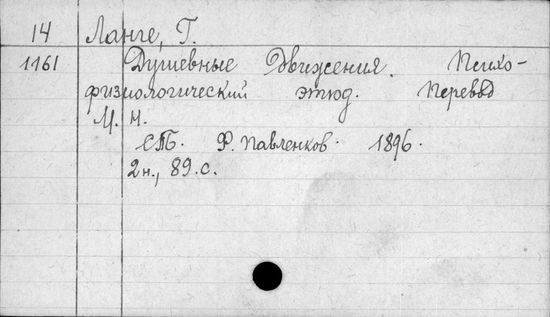 14 Ланге, Г.
1161 Душевные движения. Психо-
физиологический этюд. Перевод
М. Н.
СТБ. Ф. Павленков. 1896.
2н., 89.с.